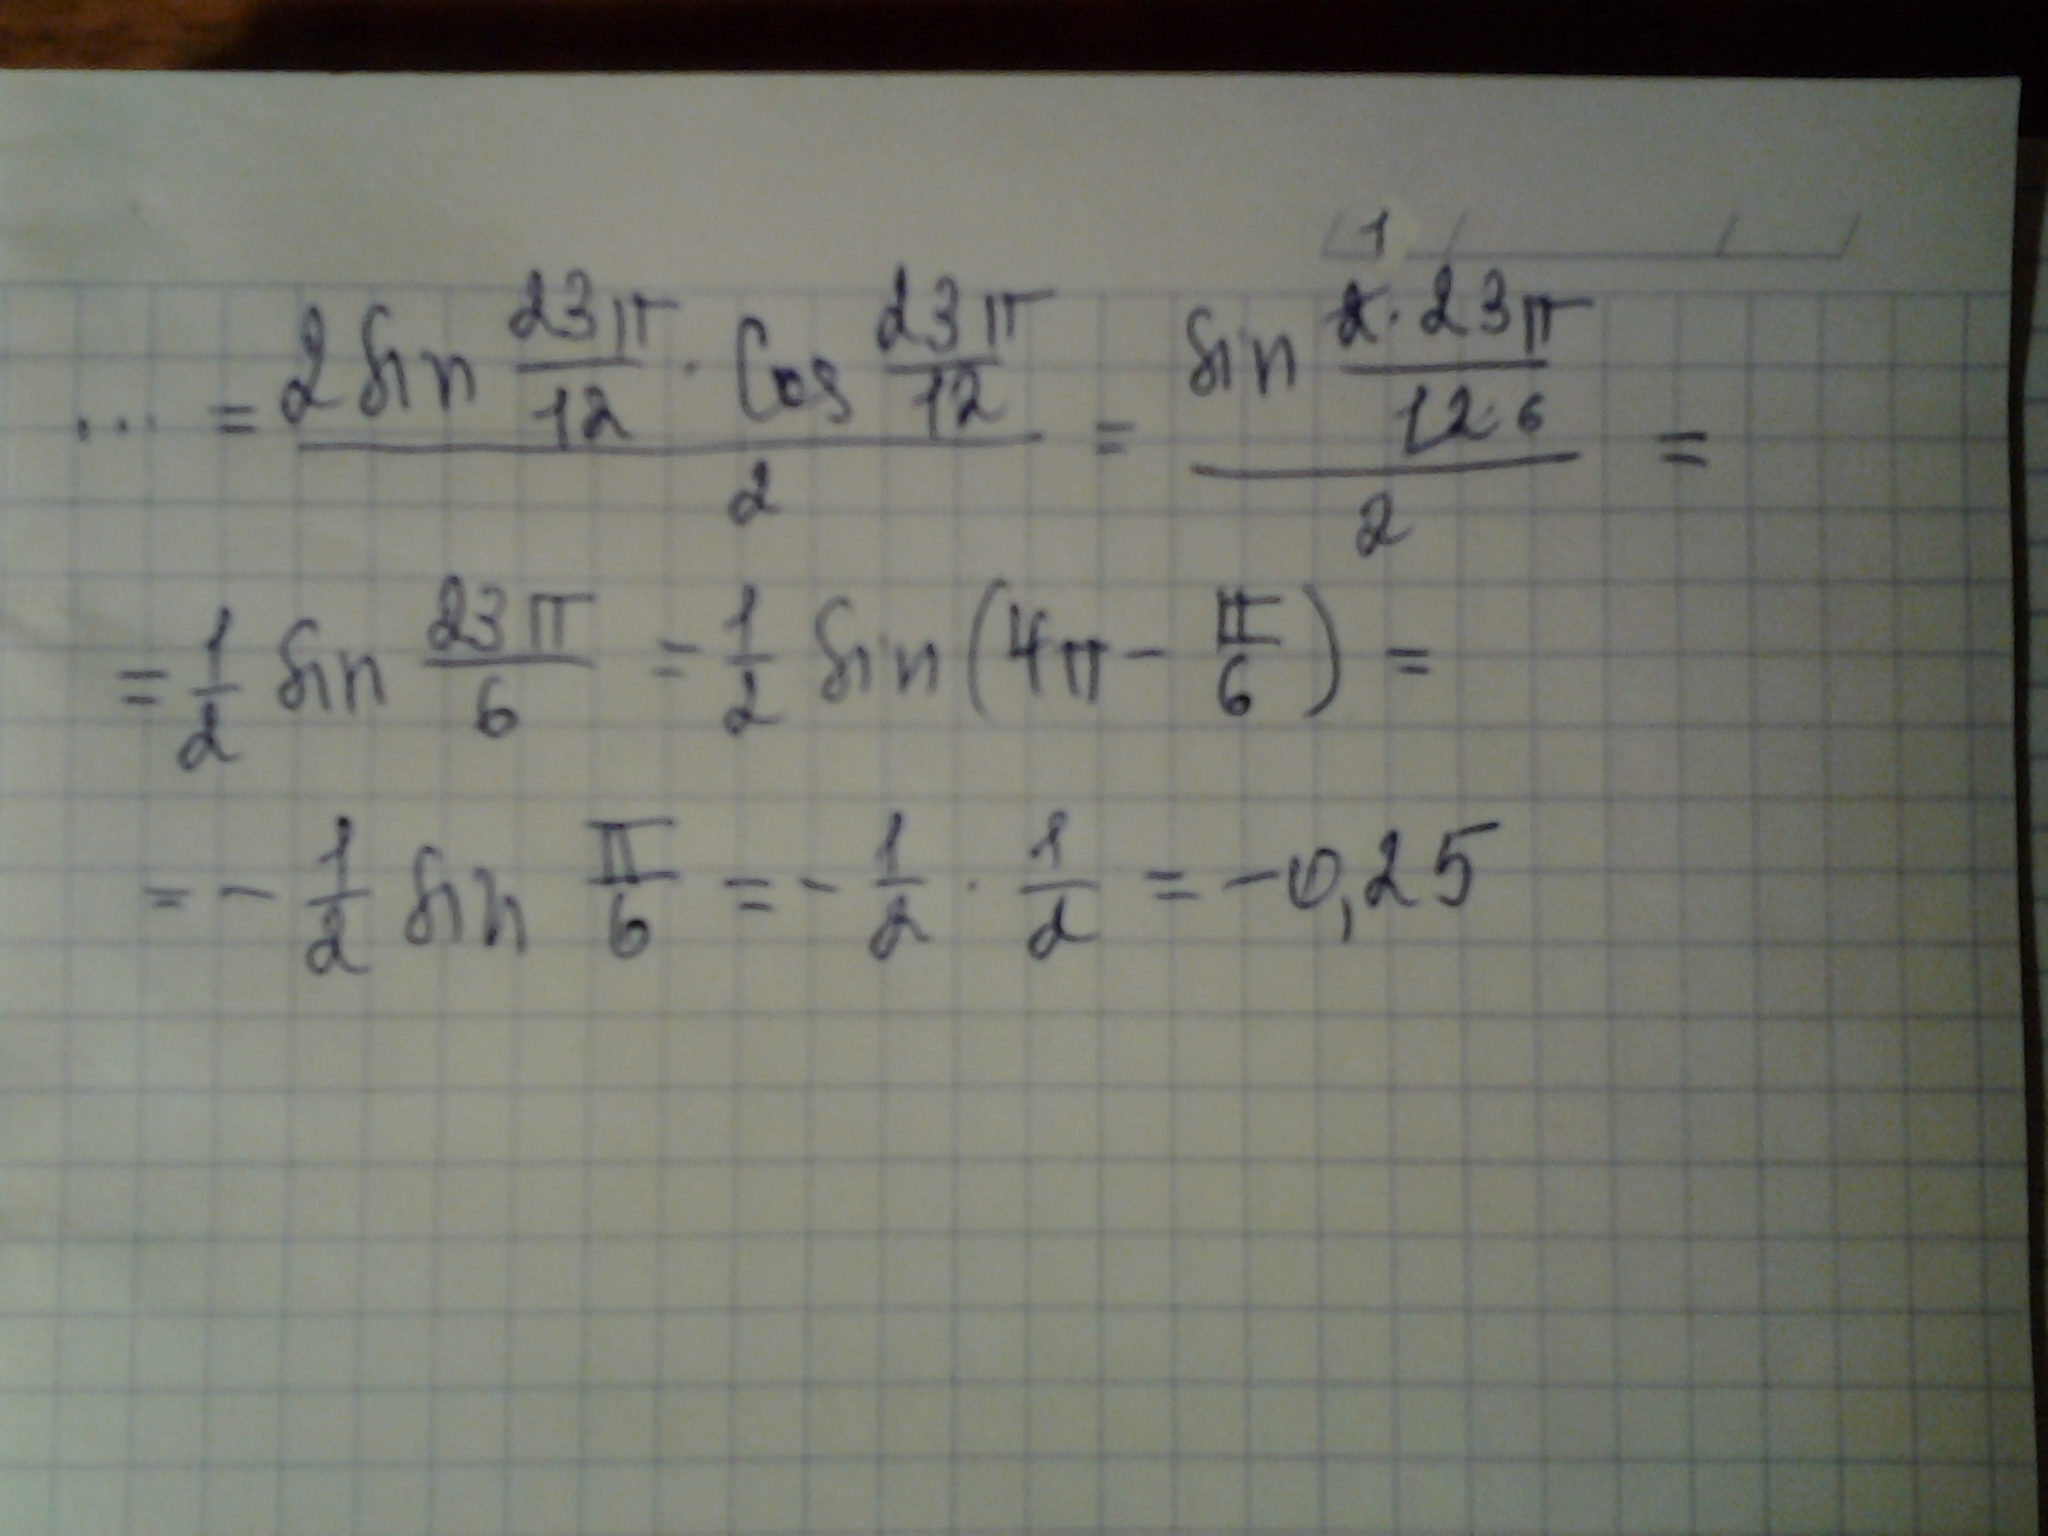 ... = (2 sin 23π/12 · cos 23π/12)/2 = (sin 2·23π/12 6)/2 =
= 1/2 sin 23π/6 = 1/2 sin(4π - π/6) =
= - 1/2 sin π/6 = - 1/2 · 1/2 = -0,25